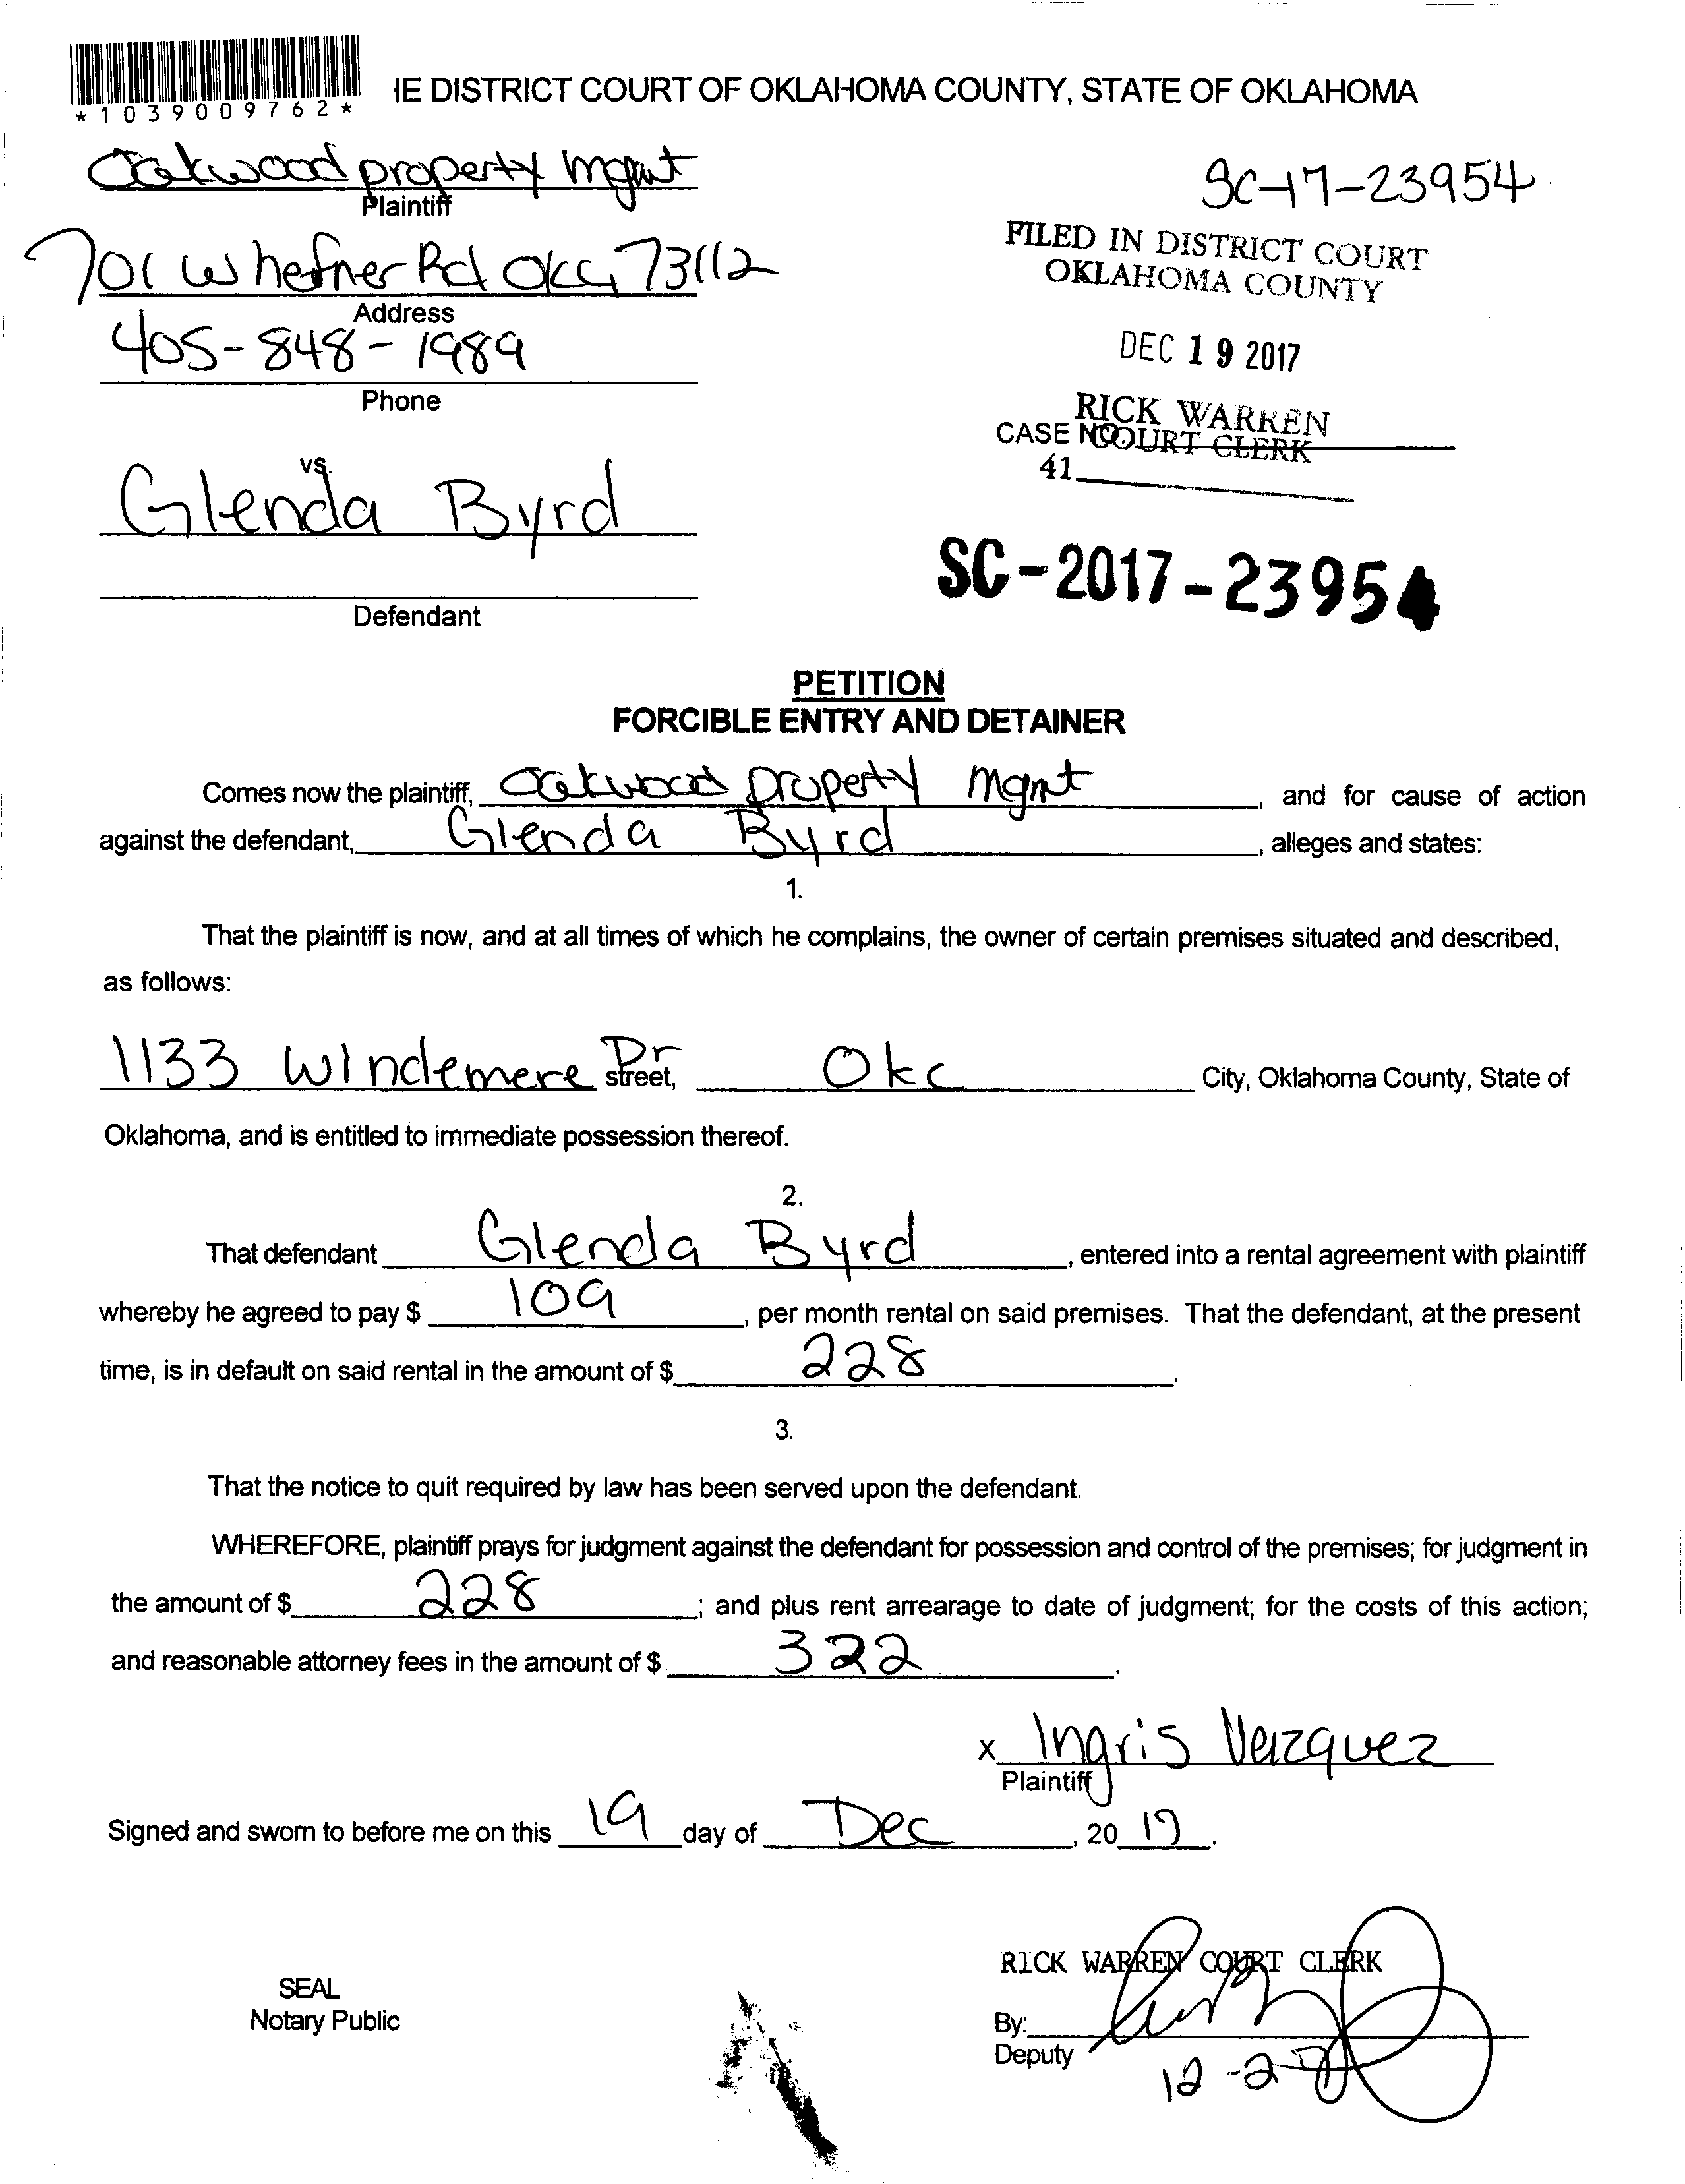 *1039009762*
IE DISTRICT COURT OF OKLAHOMA COUNTY, STATE OF OKLAHOMA
Oakwood property mgmt
Plaintiff
SC-17-23954
701 W hefner Rd OKC 73112
Address
FILED IN DISTRICT COURT
OKLAHOMA COUNTY
405-848-1989
Phone
DEC 19 2017
RICK WARREN
CASE NO. COURT CLERK
41
vs.
Glenda Byrd
Defendant
SC-2017-23954
PETITION
FORCIBLE ENTRY AND DETAINER
Comes now the plaintiff, Oakwood property mgmt, and for cause of action
against the defendant, Glenda Byrd, alleges and states:
1.
That the plaintiff is now, and at all times of which he complains, the owner of certain premises situated and described,
as follows:
1133 Windemere Dr street, Okc City, Oklahoma County, State of
Oklahoma, and is entitled to immediate possession thereof.
2.
That defendant Glenda Byrd, entered into a rental agreement with plaintiff
whereby he agreed to pay $ 109, per month rental on said premises. That the defendant, at the present
time, is in default on said rental in the amount of $ 228.
3.
That the notice to quit required by law has been served upon the defendant.
WHEREFORE, plaintiff prays for judgment against the defendant for possession and control of the premises; for judgment in
the amount of $ 228; and plus rent arrearage to date of judgment; for the costs of this action;
and reasonable attorney fees in the amount of $ 322.
x Ingris Vazquez
Plaintiff
Signed and sworn to before me on this 19 day of Dec, 2017.
RICK WARREN COURT CLERK
SEAL
Notary Public
By:
Deputy